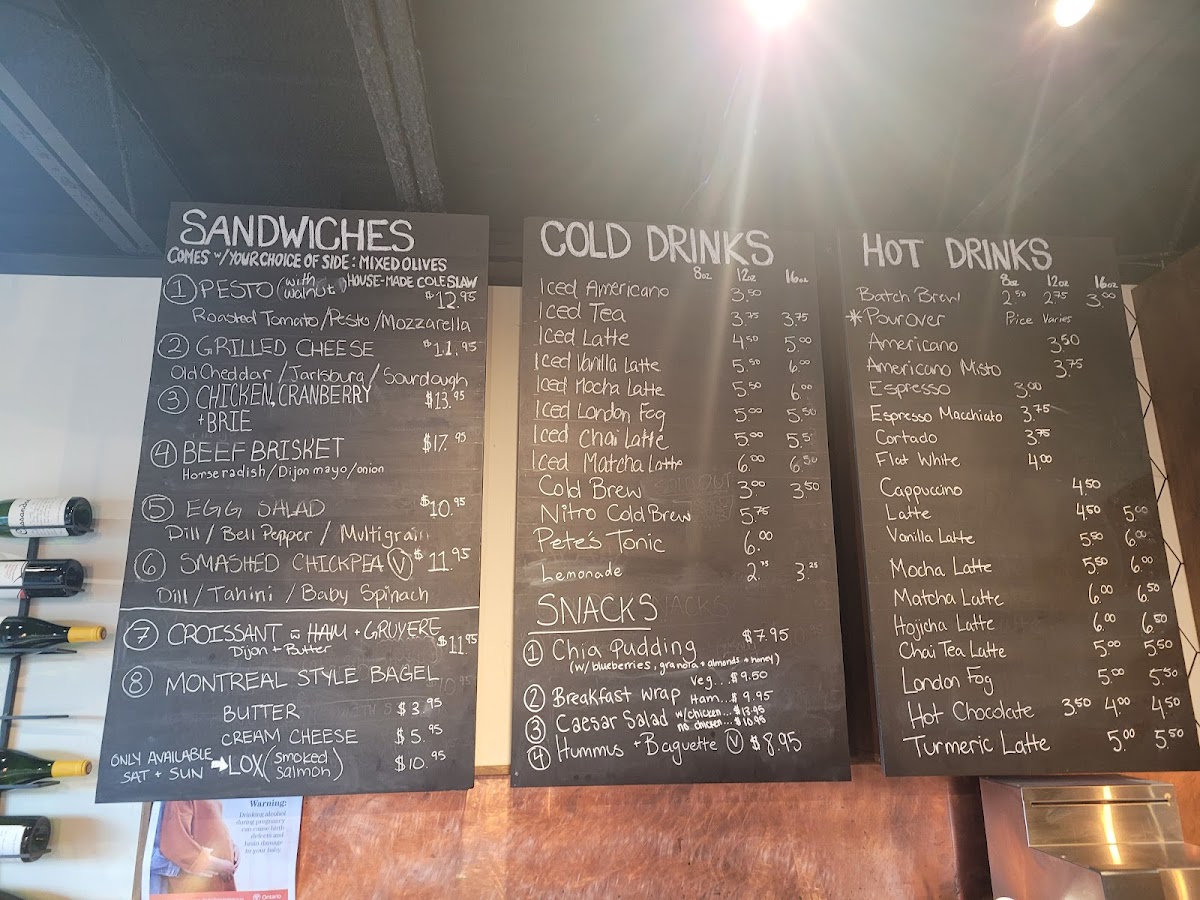 SANDWICHES
COMES w/ YOUR CHOICE OF SIDE: MIXED OLIVES
HOUSE-MADE COLESLAW
① PESTO (with walnut) $12.95
Roasted Tomato/Pesto/Mozzarella
② GRILLED CHEESE $11.95
Old Cheddar/Jarlsburg/Sourdough
③ CHICKEN, CRANBERRY $13.95
+ BRIE
④ BEEF BRISKET $17.95
Horseradish/Dijon mayo/onion
⑤ EGG SALAD $10.95
Dill/Bell Pepper/Multigrain
⑥ SMASHED CHICKPEA Ⓥ $11.95
Dill/Tahini/Baby Spinach
⑦ CROISSANT w̄ HAM + GRUYERE $11.95
Dijon + Butter
⑧ MONTREAL STYLE BAGEL
BUTTER $3.95
CREAM CHEESE $5.95
ONLY AVAILABLE
SAT + SUN → LOX (smoked salmon) $10.95
COLD DRINKS
8oz 12oz 16oz
Iced Americano 3.50
Iced Tea 3.75 3.75
Iced Latte 4.50 5.00
Iced Vanilla Latte 5.50 6.00
Iced Mocha Latte 5.50 6.00
Iced London Fog 5.00 5.50
Iced Chai Latte 5.00 5.5
Iced Matcha Latte 6.00 6.50
Cold Brew 3.00 3.50
Nitro Cold Brew 5.75
Pete's Tonic 6.00
Lemonade 2.75 3.25
SNACKS
① Chia Pudding $7.95
(w/blueberries, granora + almonds + honey)
Veg... $9.50
② Breakfast wrap Ham... $9.95
③ Caesar Salad w/chicken... $13.95
no chicken... $10.95
④ Hummus + Baguette Ⓥ $8.95
HOT DRINKS
8oz 12oz 16oz
Batch Brew 2.50 2.75 3.00
* Pour Over Price Varies
Americano 3.50
Americano Misto 3.75
Espresso 3.00
Espresso Macchiato 3.75
Cortado 3.75
Flat White 4.00
Cappuccino 4.50
Latte 4.50 5.00
Vanilla Latte 5.50 6.00
Mocha Latte 5.50 6.00
Matcha Latte 6.00 6.50
Hojicha Latte 6.00 6.50
Chai Tea Latte 5.00 5.50
London Fog 5.00 5.50
Hot Chocolate 3.50 4.00 4.50
Turmeric Latte 5.00 5.50
Warning:
Drinking alcohol
during pregnancy
can cause birth
defects and
brain damage
to your baby.
Ontario